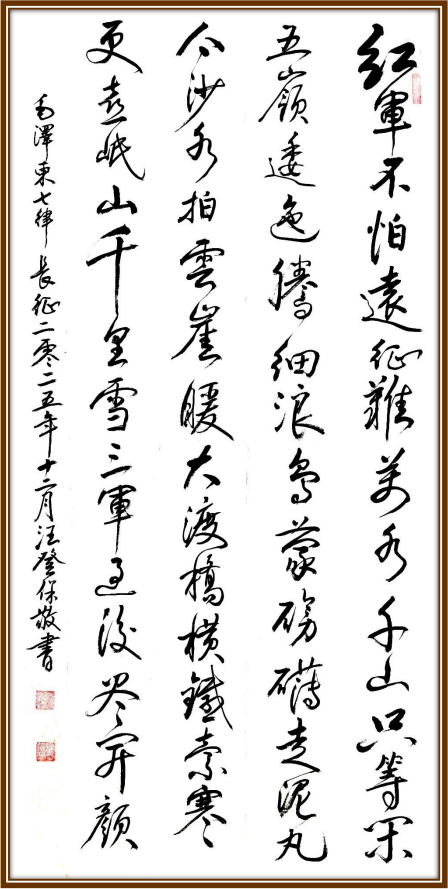 紅軍不怕遠征難萬水千山只等閑
五嶺逶迤騰細浪烏蒙磅礴走泥丸
金沙水拍雲崖暖大渡橋橫鐵索寒
更喜岷山千里雪三軍過後盡開顏
毛澤東七律長征二零二五年十二月汪登保敬書